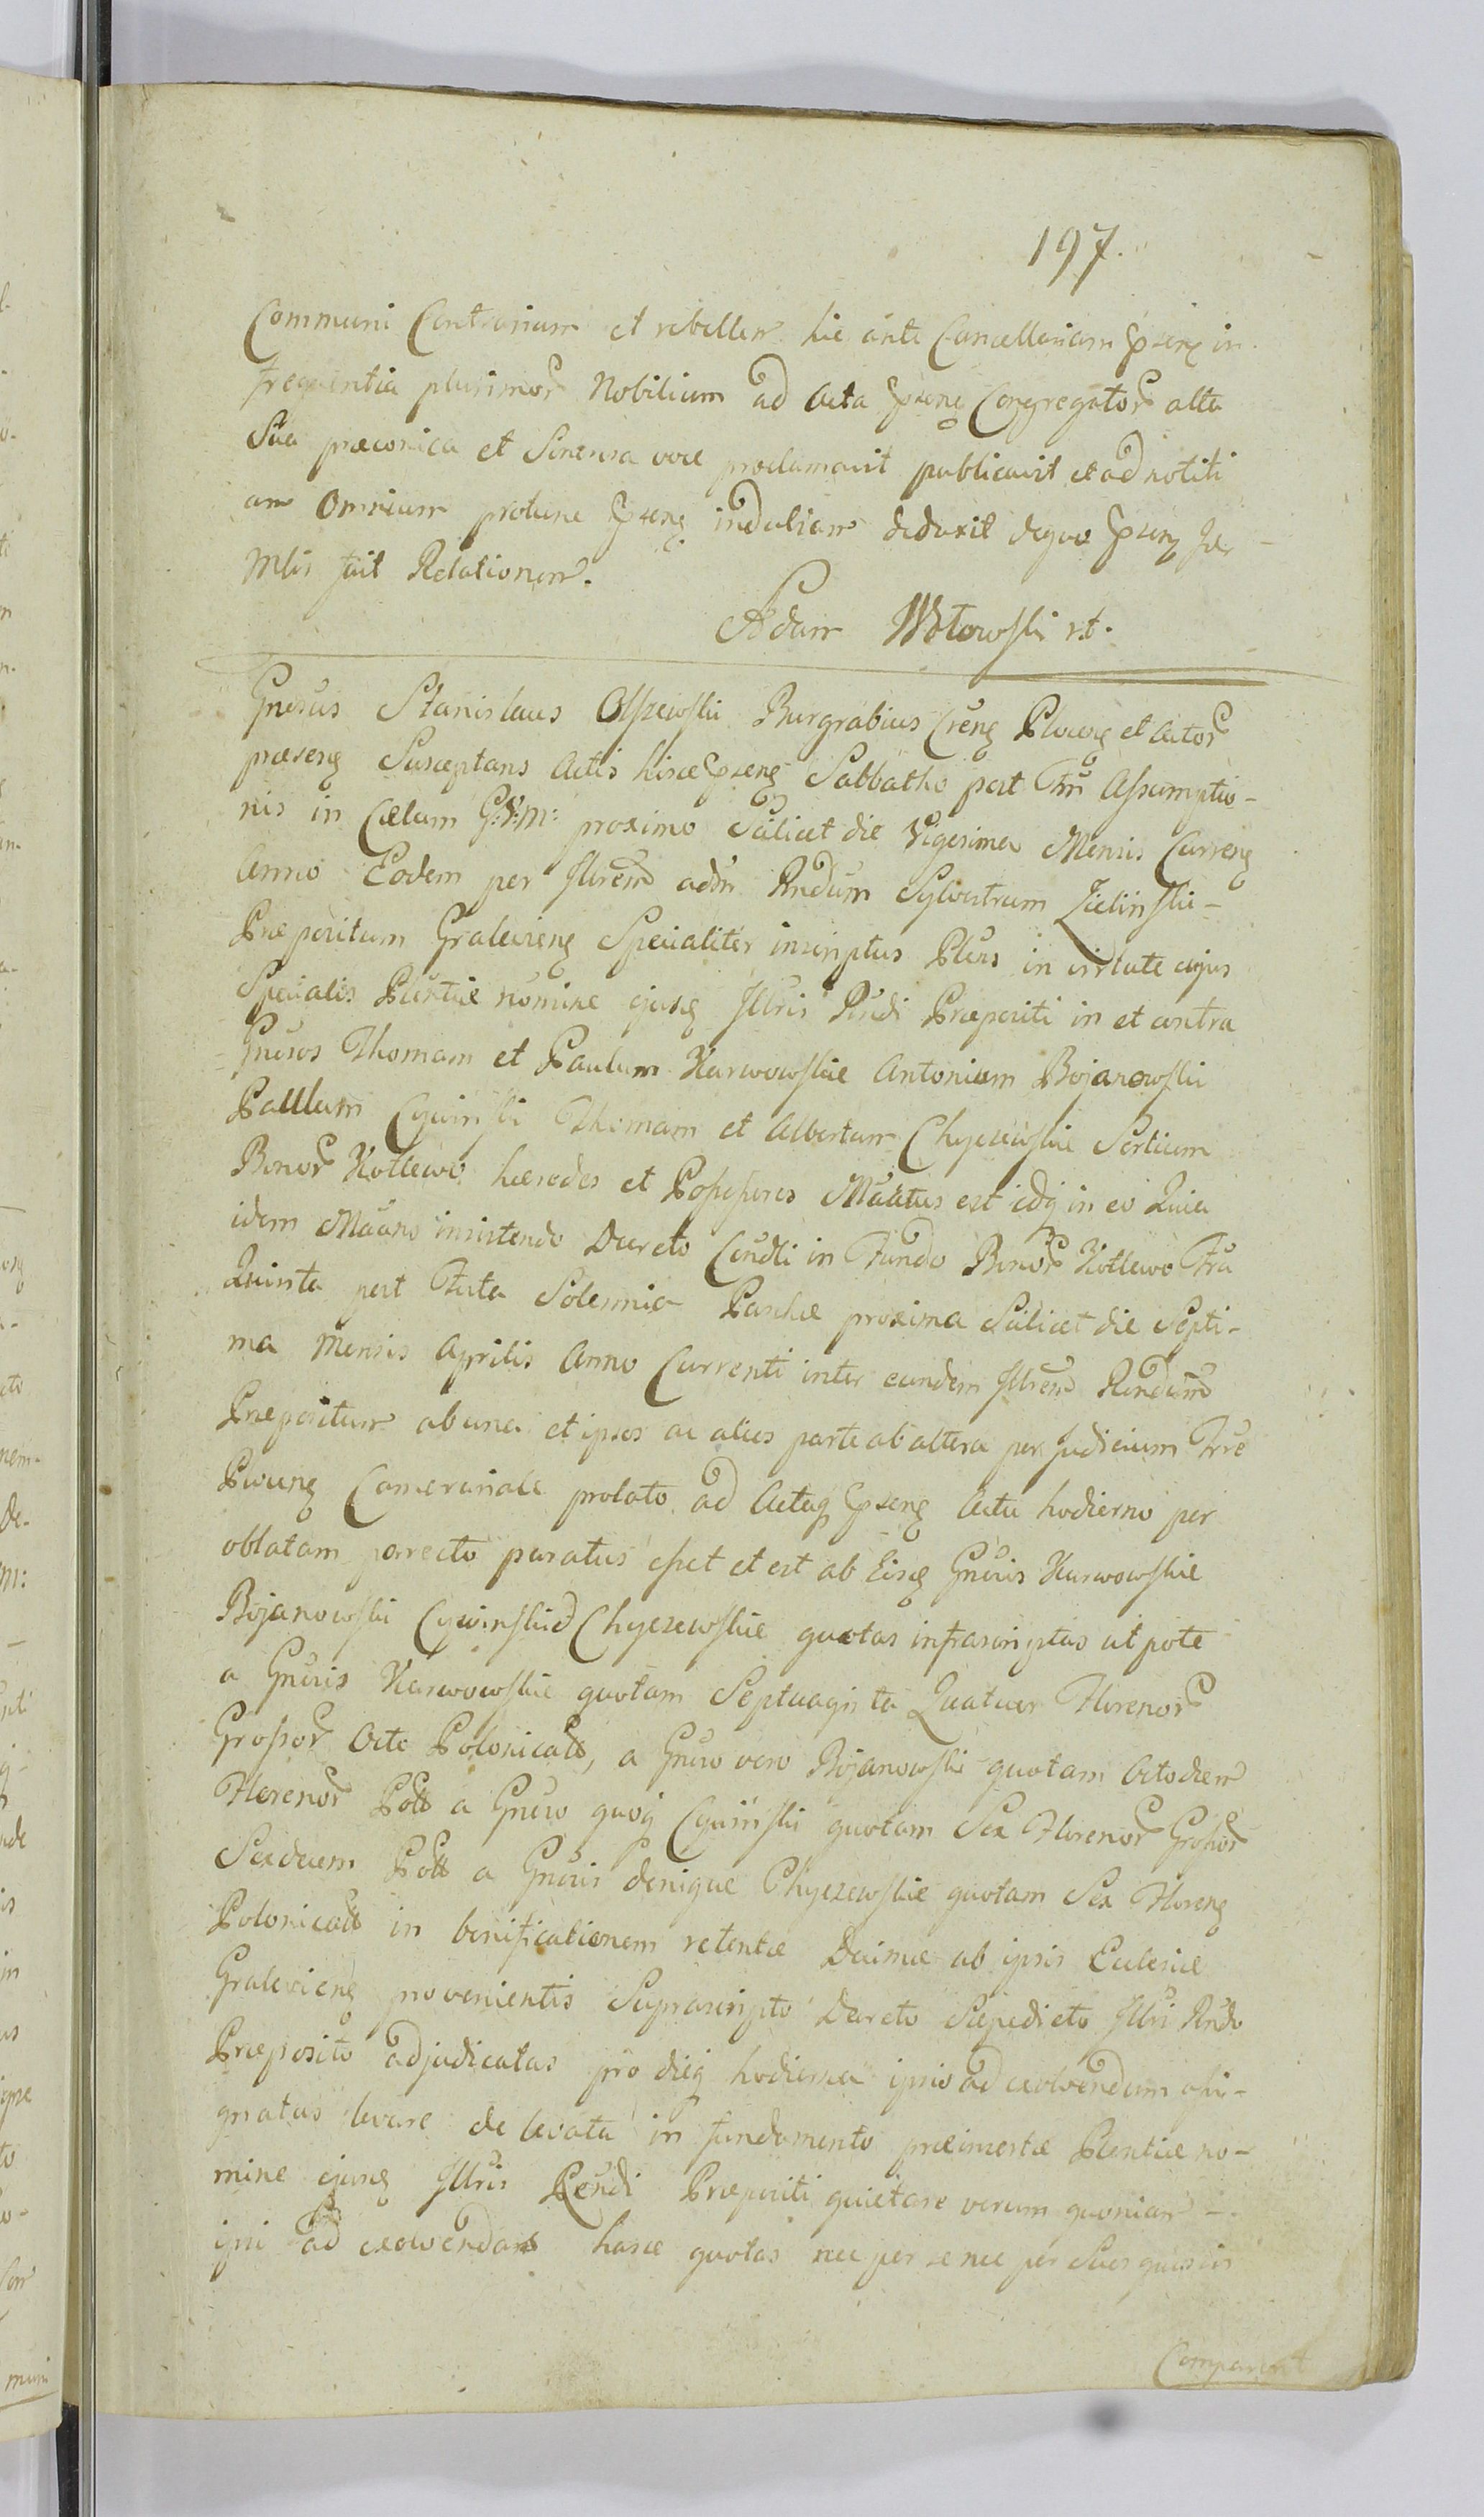 197.
Communi Contrarium et rebellem hic ante Cancellariam Prseng in
frequentia plurimor Nobilium ad Acta Prseng Congregator alta
Sua præconica et Sonensa voce proclamavit publicavit et ad notiti
am Omnium protunc Prseng indubiam deduxit deque Prseng Je
Mtis fecit Relationem.
Adam Wotowski rt.
Gnosus Stanislaus Olszewski Burgrabius Creng Ploceng et Actor
præseng Susceptans Actis hisce Prseng Sabbatho post Ftm Assumptio-
nis in Cælum G:V:M: proximo Scilicet die Vigesima Mensis Curreng
Anno Eodem per Jllrem adm Rndum Sylvestrum Zielinski-
Præpositum Graleviens Specialiter inscriptus Plens in virtute cujus
Specialis Plentiæ nomine ejusq Jllris Rndi Præpositi in et contra
Gnosos Thomam et Paulum Karwowskie Antonium Bojanowski
Paulum Cywinski Thomam et Albertum Chyczewskie Sortium
Bonor Kotlewo hæredes et Possessores Määtus est idq in eo Quia
idem Määns insistendo Decreto Condli in Fundo Bonor Kotlewo Fra
Quinta post Festa Solennia Paschæ proxima Scilicet die Septi-
ma Mensis Aprilis Anno Currenti inter eundem Jllrem Rendum
Præpositum ab una et ipsos ac alios parte ab altera per Judicium Trre
Ploceng Camerariale prolato ad Actaq Prseng Actu hodierno per
oblatam porrecto paratus esset et est ab Eisq Gnosis Karwowskie
Bojanowski Cywinski Chyczewskie quotas infrascriptas utpote
a Gnosis Karwowskie quotam Septuaginta Quatuor Florenor
Grossor Octo Polonicall, a Gnoso vero Bojanowski quotam Octodem
Florenor Poll a Gnoso quoq Cywinski quotam Sex Florenor Grossor
Sexdecem Poll a Gnosis denique Chyczewskie quotam Sex Floreng
Polonicall in bonificationem retentæ Decimæ ab ipsis Ecclesiæ
Graleviens provenientis Suprascripto Decreto Sæpedicto Jllri Rndo
Præposito adjudicatas pro dieq hodierna ipsis ad exolvendum assi-
gnatas levare de levata in fundamento præinsertæ Plentiæ no-
mine ejusq Jllris Rendi Præpositi quietare verum quoniam -.
ipsi ad exolvendas hasce quotas nec per se nec per Suos quosvis
Comparent